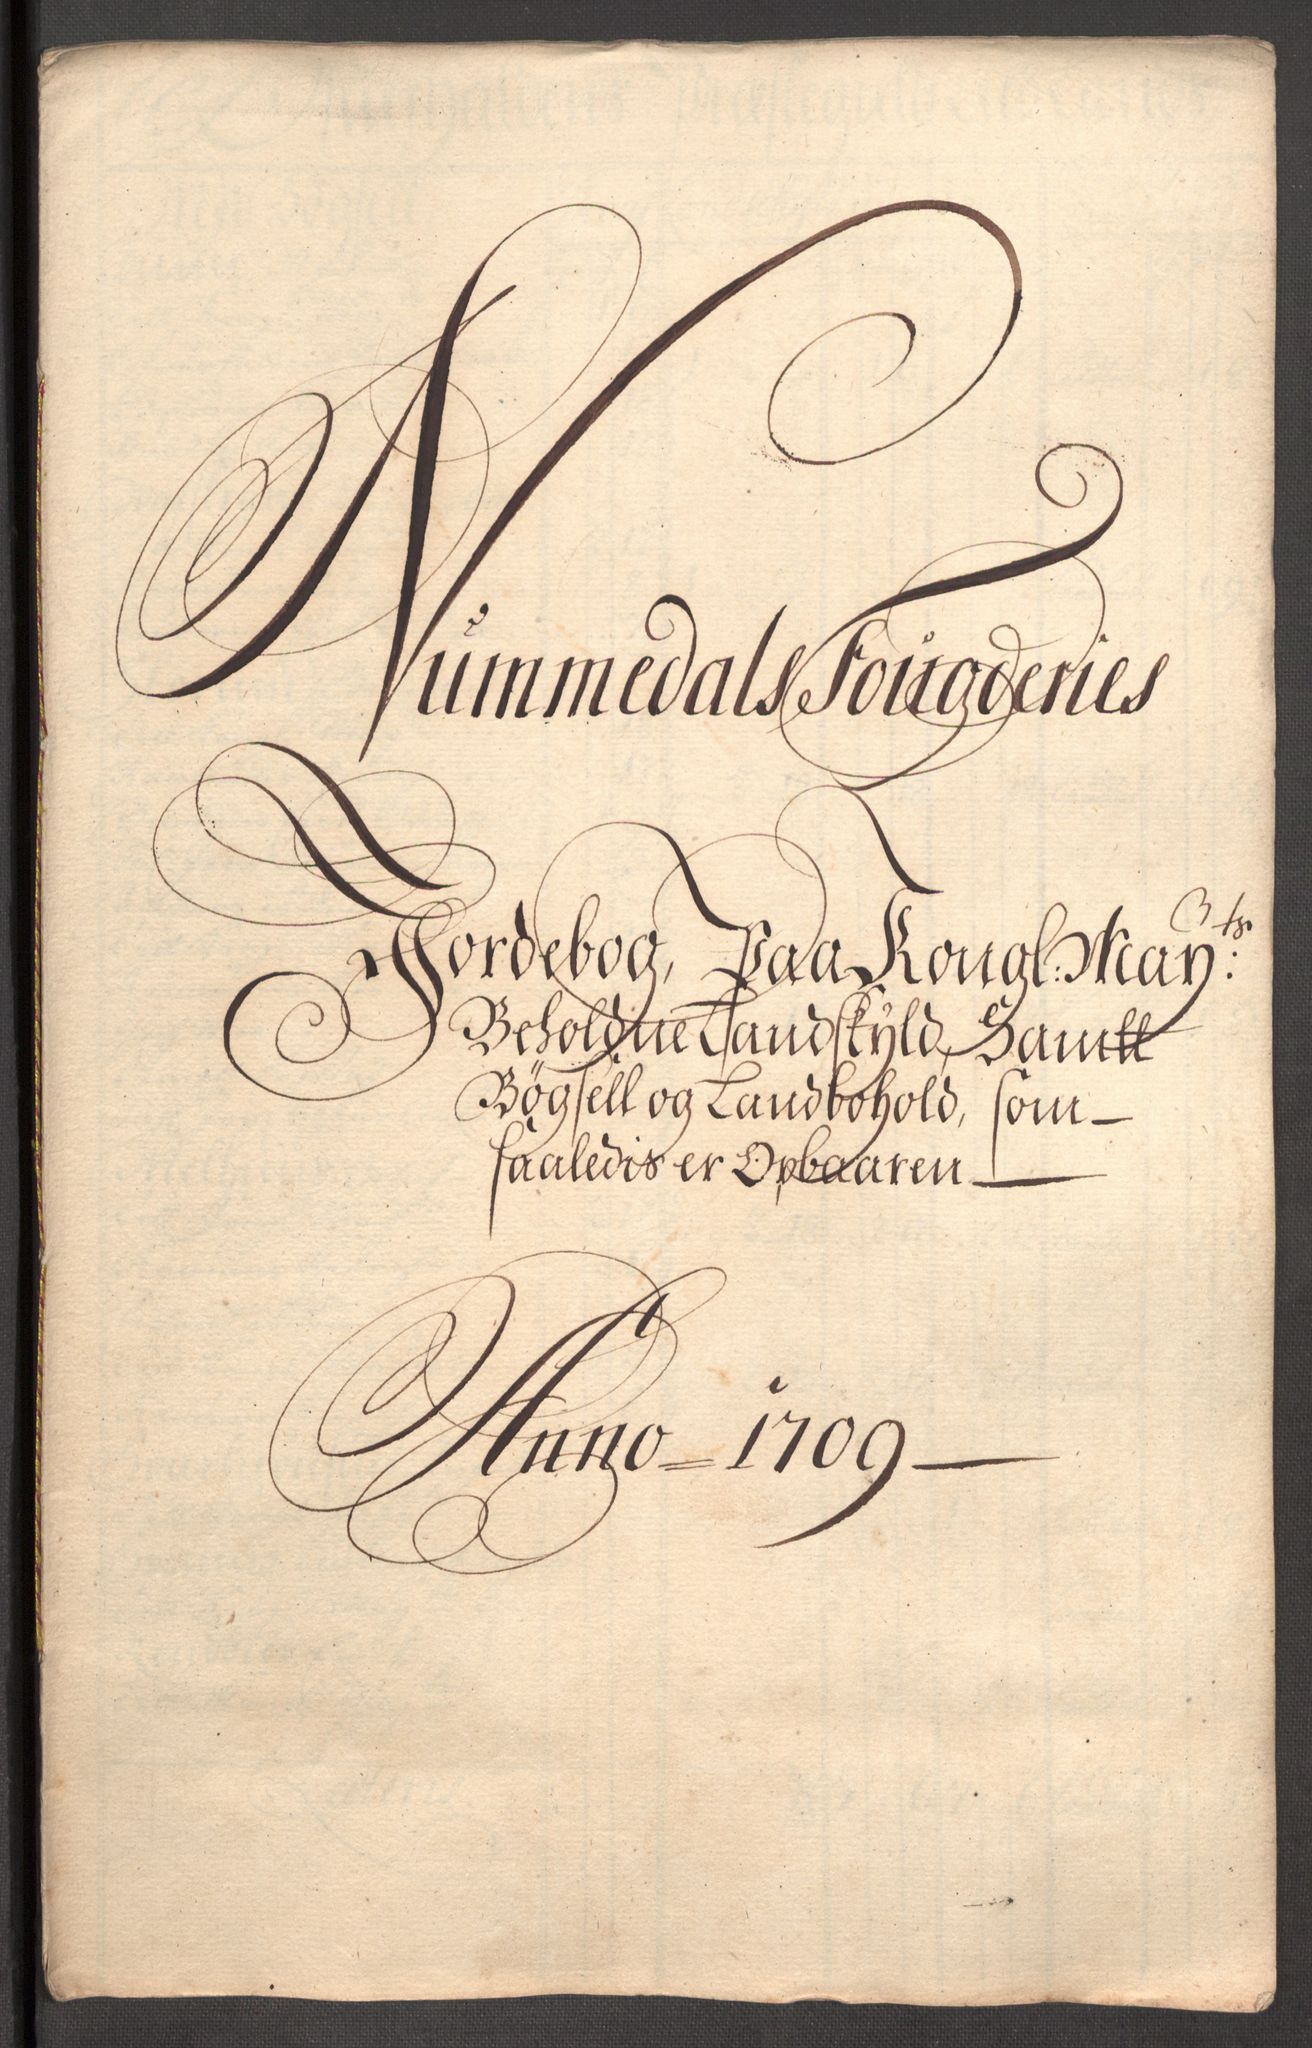 Nummedals Fougderies
Jordebog, Paa Kongl: Mayts:
Beholdne Landskyld, Samtt
Bøgsell og Landbohold, som
saaledis er Opbaaren
Anno = 1709